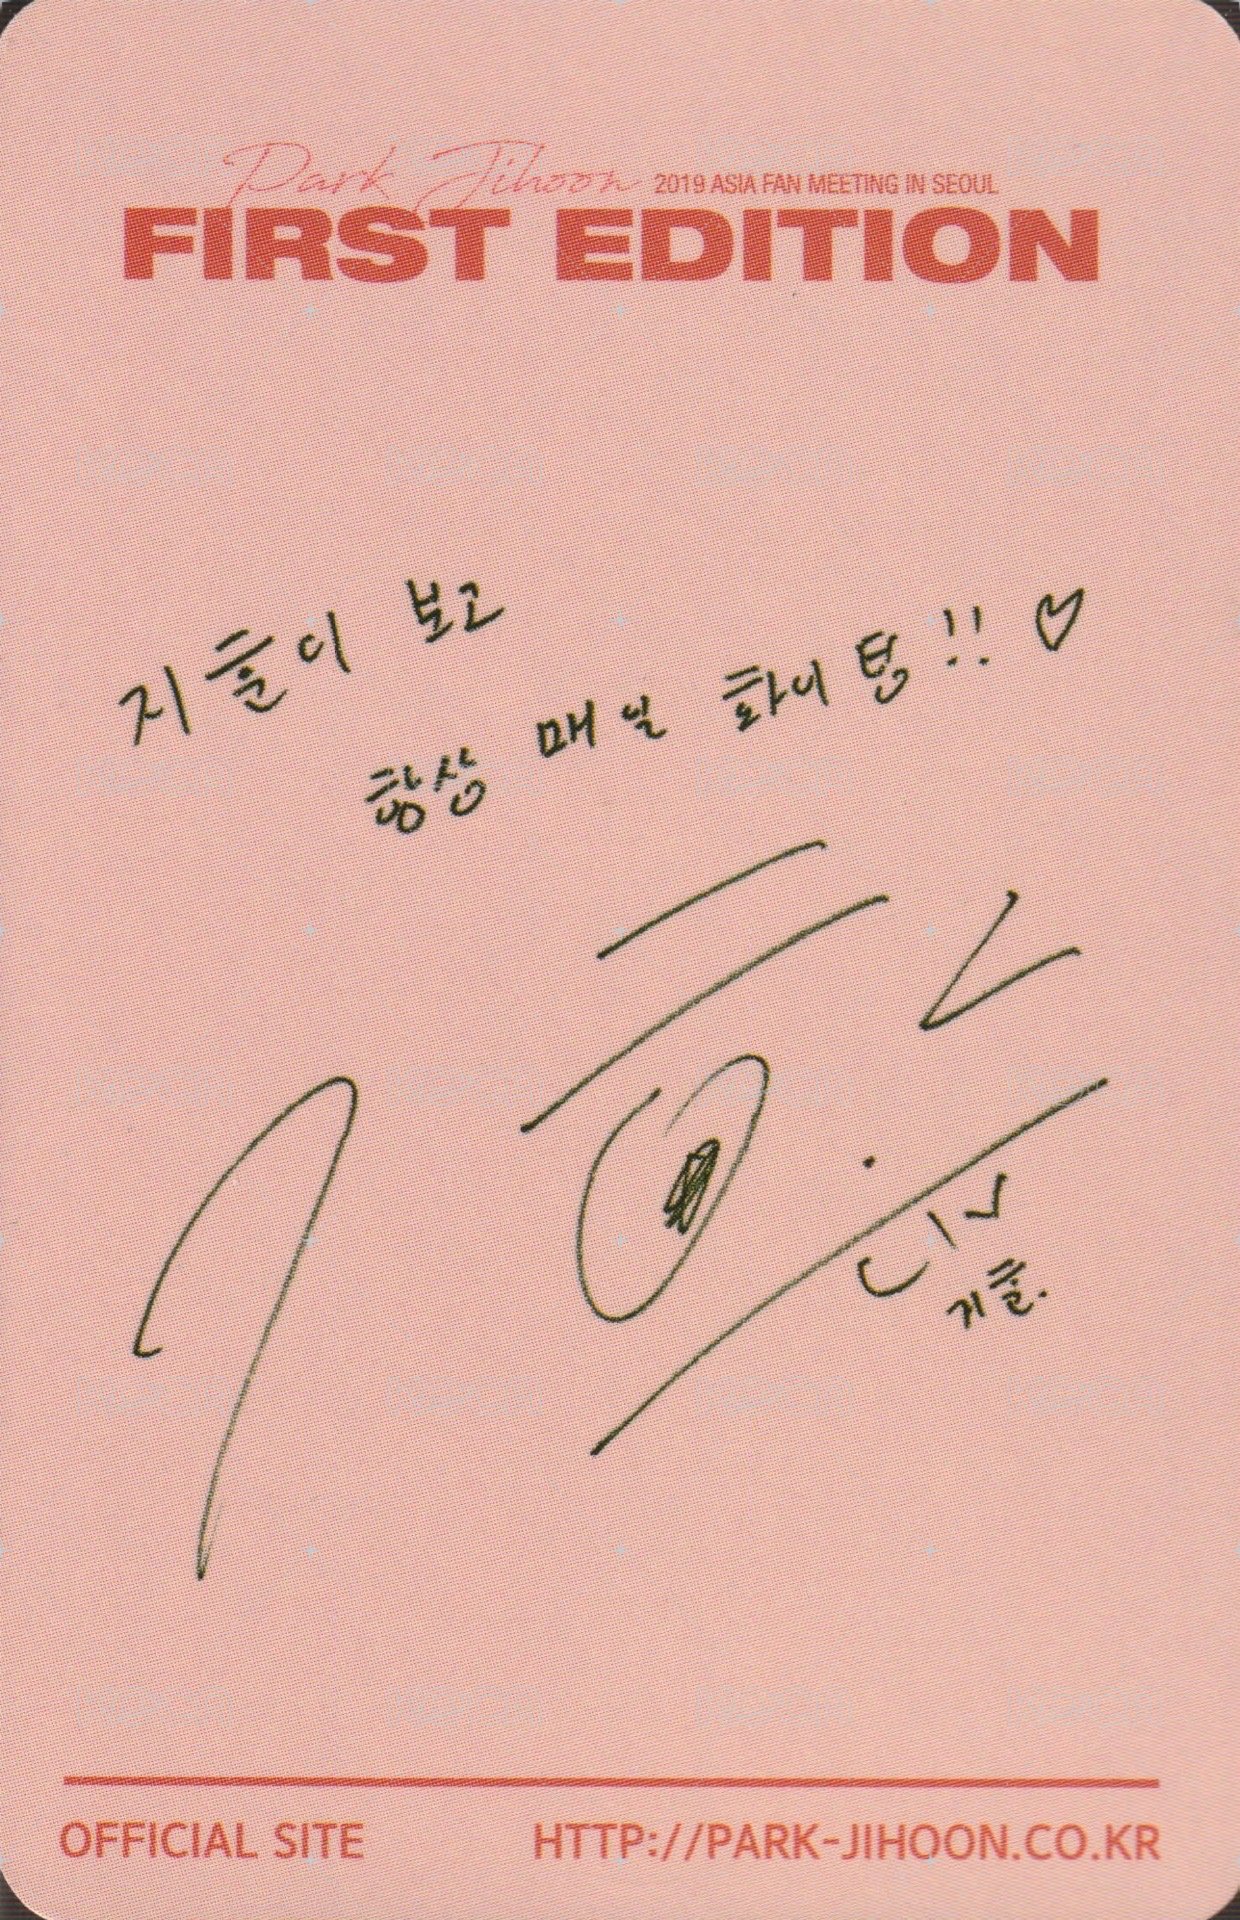 Park Jihoon 2019 ASIA FAN MEETING IN SEOUL
FIRST EDITION
지훈이 보고
항상 매일 화이팅!! ♡
지훈
지훈.
OFFICIAL SITE HTTP://PARK-JIHOON.CO.KR